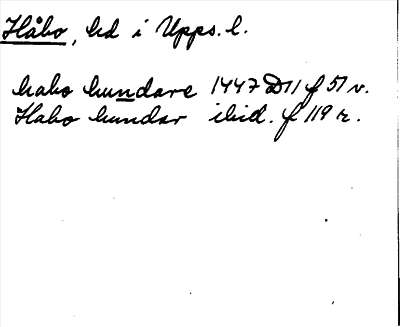 Håbo, hd i Upps. l.
habo hundare 1447 D11 f 51 v.
Habo hundar ibid. f 119 r.